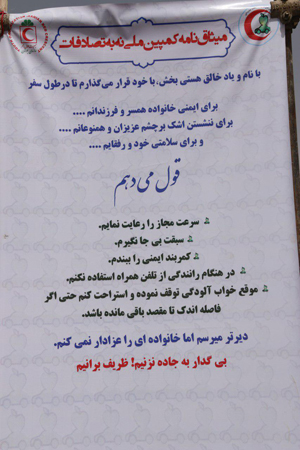 میثاق نامه کمپین ملی نه به تصادفات
با نام و یاد خالق هستی بخش، با خود قرار می‌گذارم تا درطول سفر
برای ایمنی خانواده همسر و فرزندانم ....
برای ننشستن اشک برچشم عزیزان و همنوعانم ....
و برای سلامتی خود و رفقایم ....
قول می دهم
سرعت مجاز را رعایت نمایم.
سبقت بی جا نگیرم.
کمربند ایمنی را ببندم.
در هنگام رانندگی از تلفن همراه استفاده نکنم.
موقع خواب آلودگی توقف نموده و استراحت کنم حتی اگر
فاصله اندک تا مقصد باقی مانده باشد.
دیرتر میرسم اما خانواده ای را عزادار نمی کنم.
بی گدار به جاده نزنیم! ظریف برانیم